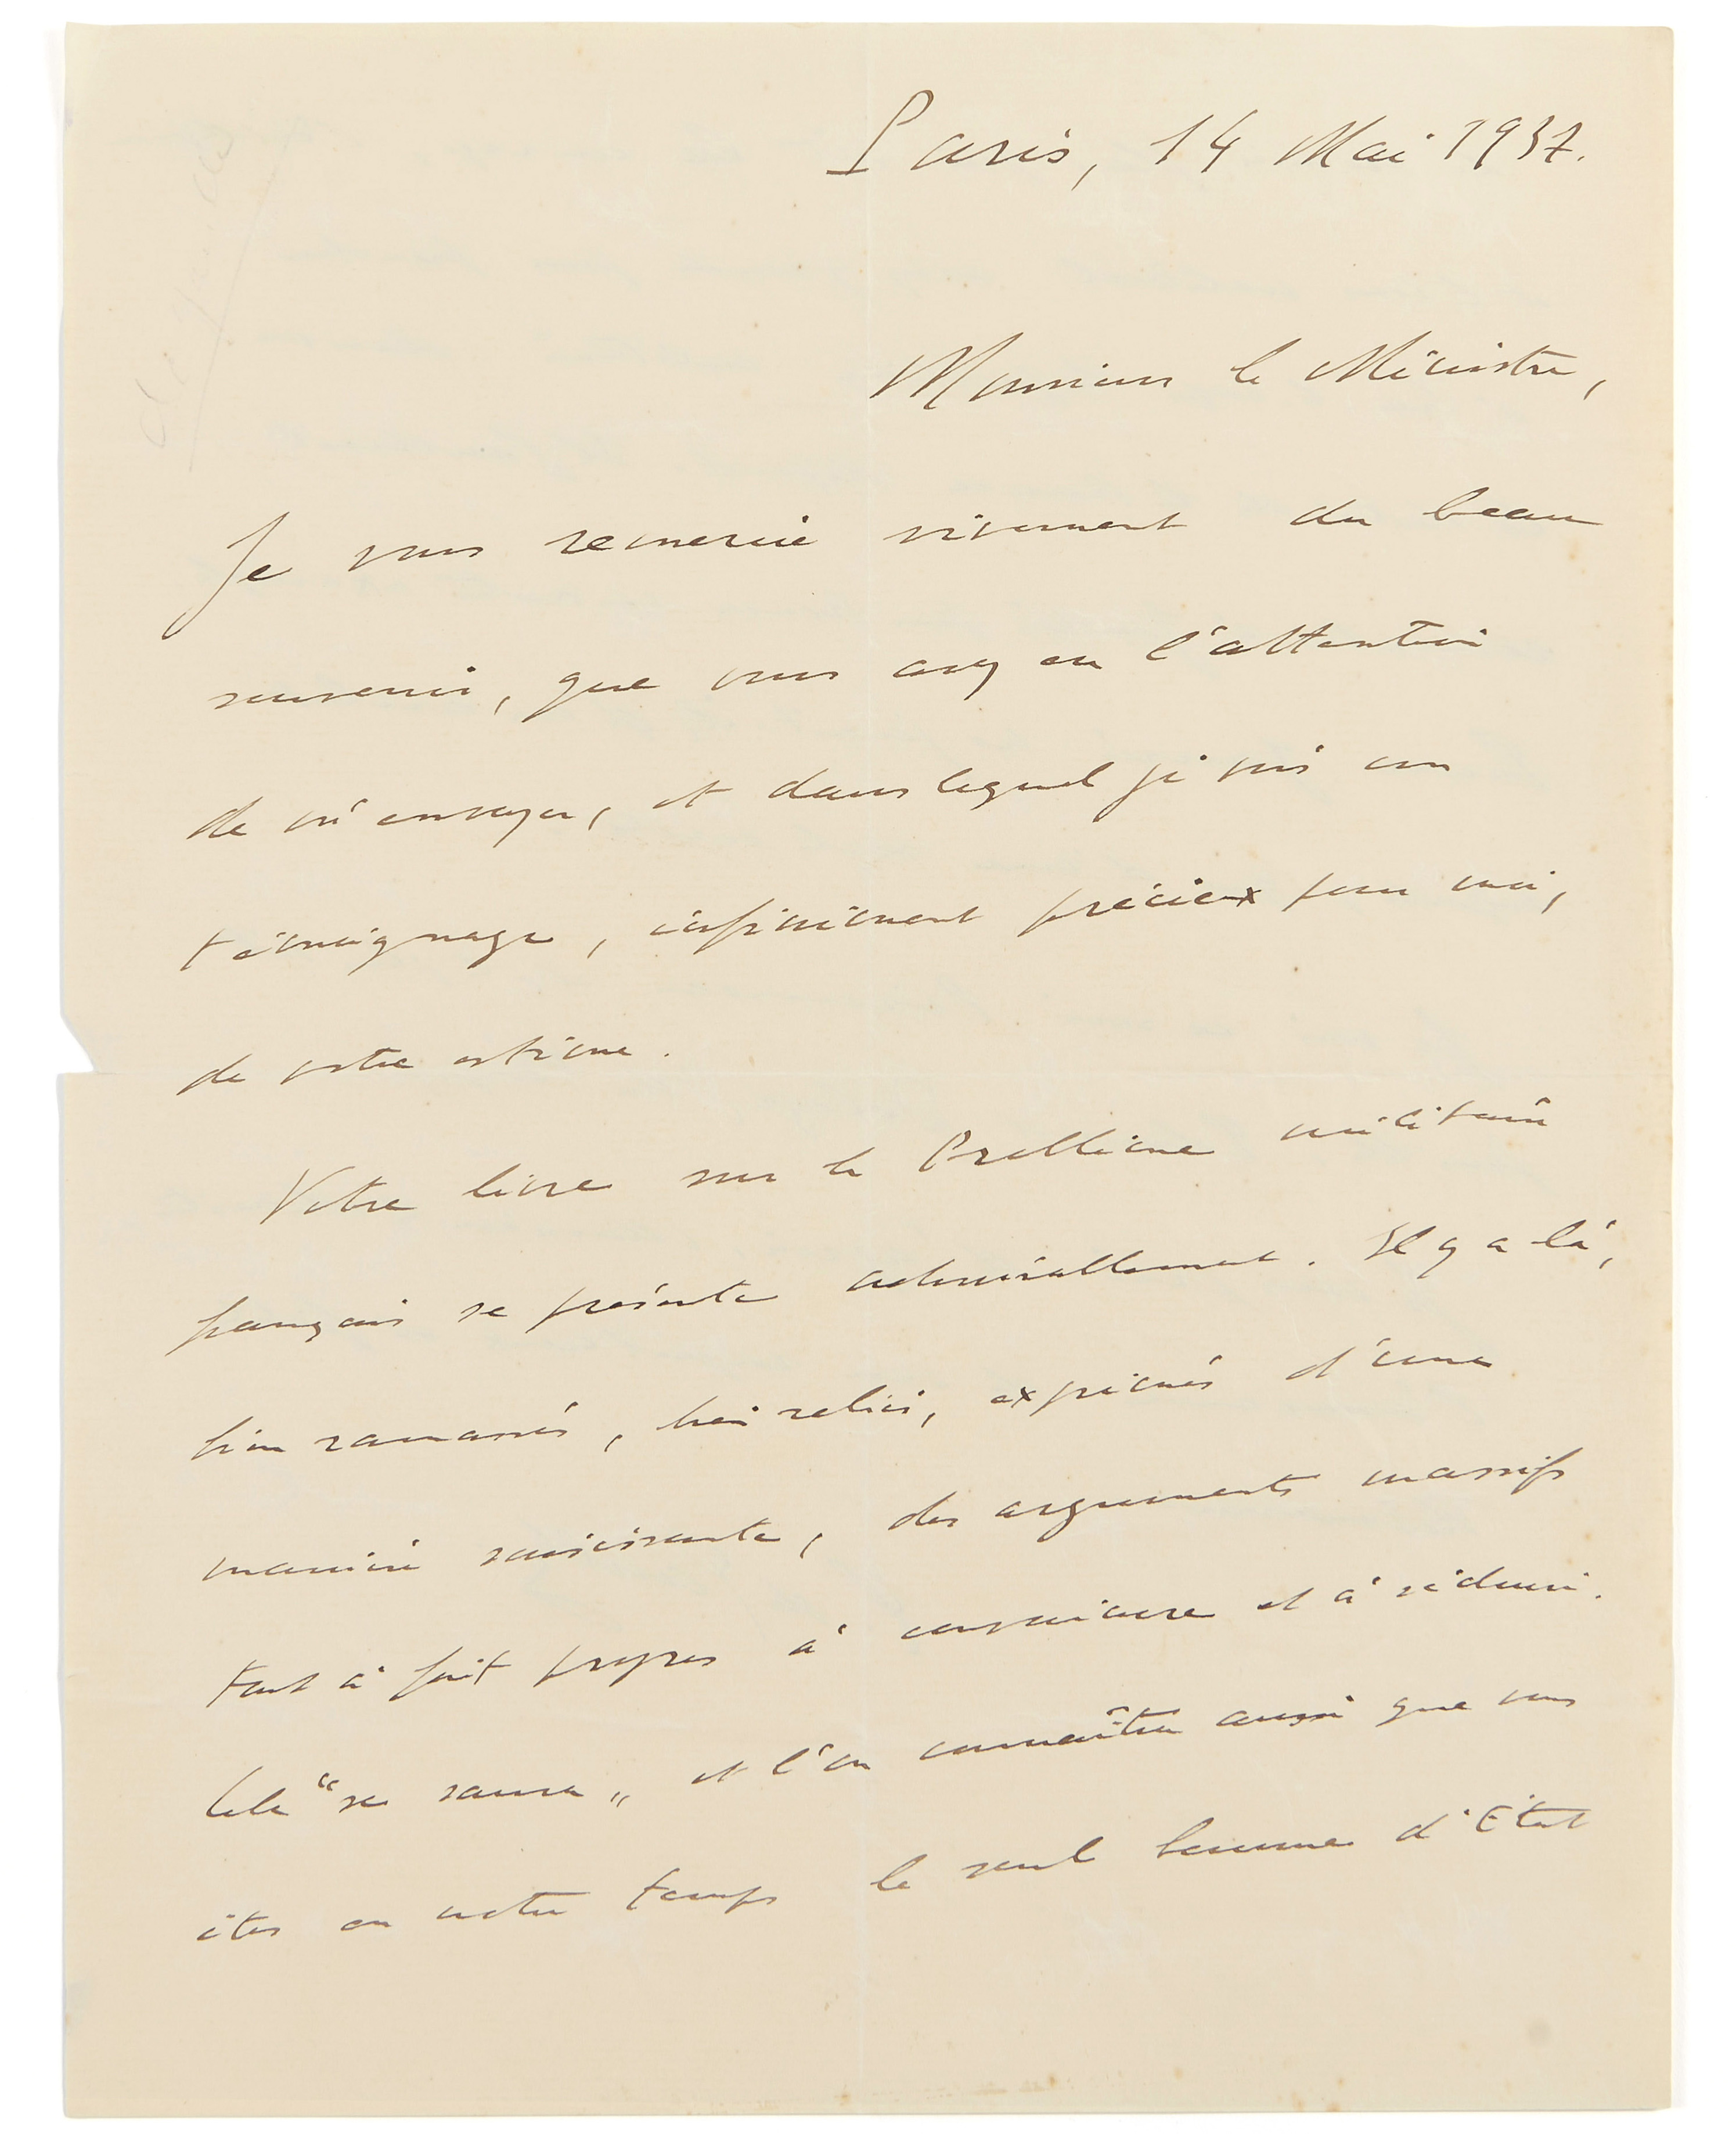 Paris, 14 Mai 1937.
Monsieur le Ministre,
Je vous remercie vivement du beau
souvenir, que vous avez eu l'attention
de m'envoyer, et dans lequel je vois un
témoignage, infiniment précieux pour moi,
de votre estime.
Votre livre sur le Problème militaire
français se présente admirablement. Il y a là,
bien ramassés, bien reliés, exprimés d'une
manière saisissante, des arguments massifs
tout à fait propres à convaincre et à séduire.
Cela "se saura„ et l'on connaîtra aussi que vous
êtes en notre temps le seul homme d'Etat